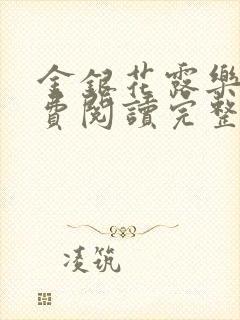 金銀花露樂
費閱讀完整
凌筑